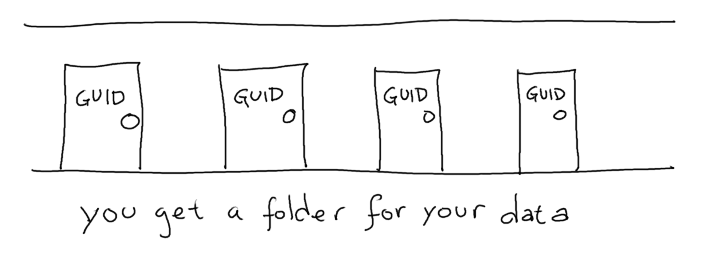 GUID GUID GUID GUID
you get a folder for your data